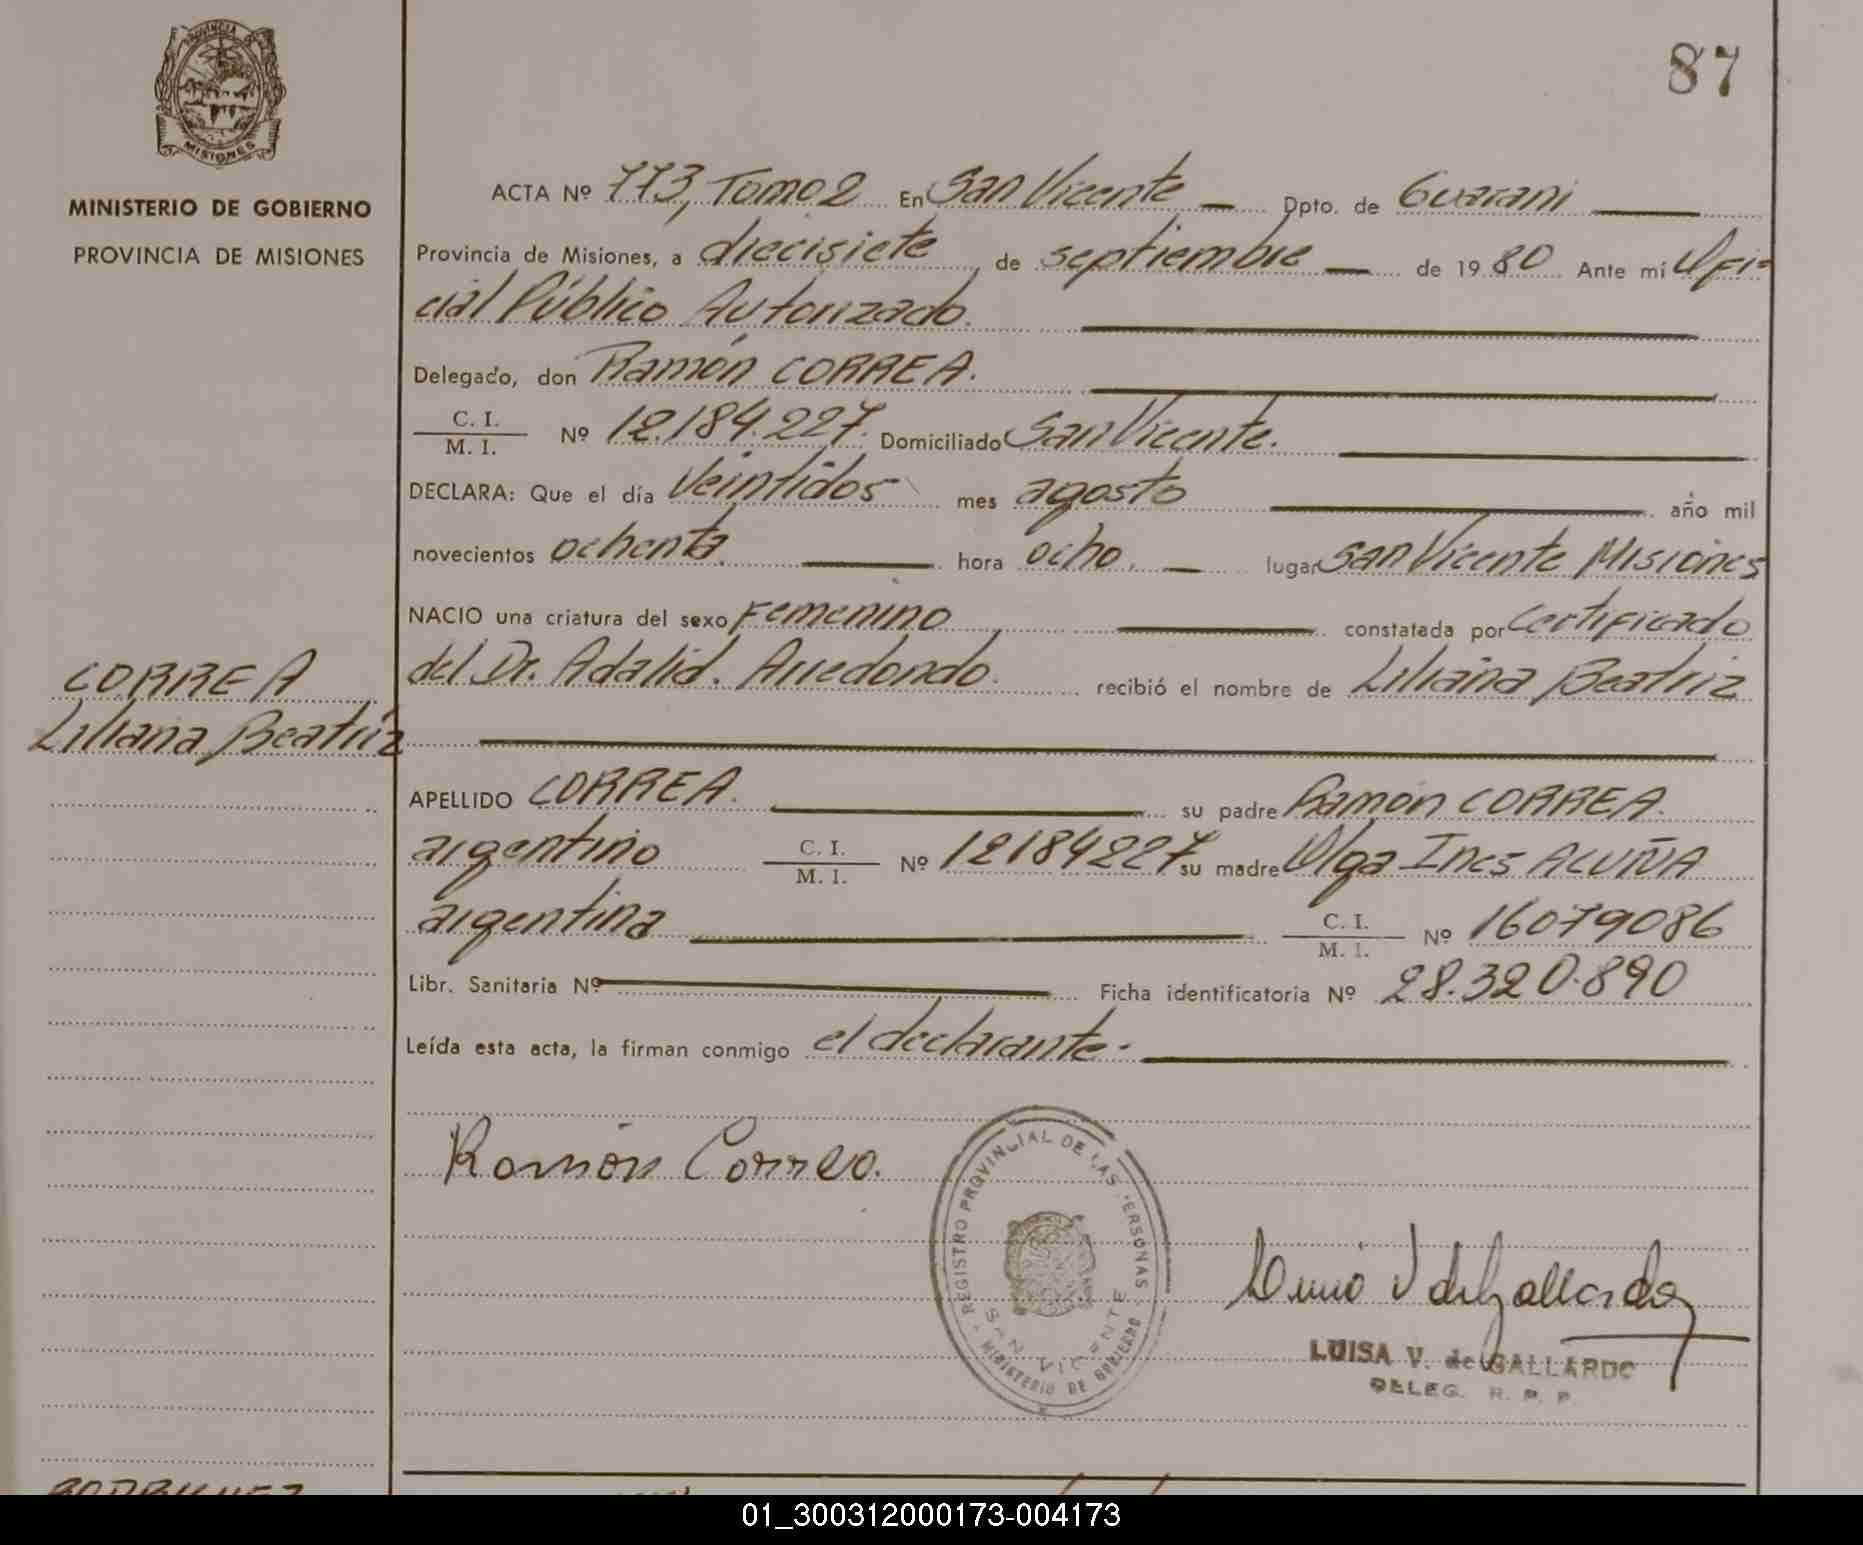 87
PROVINCIA DE
MISIONES
MINISTERIO DE GOBIERNO
PROVINCIA DE MISIONES
ACTA Nº 773, Tomo 2 En San Vicente Dpto. de Guarani
Provincia de Misiones, a diecisiete, de septiembre de 1980 Ante mí Ofi=
cial Público Autorizado.
Delegado, don Ramón CORREA.
C. I.
M. I. Nº 12.184.227. Domiciliado San Vicente.
DECLARA: Que el día Veintidos mes agosto año mil
novecientos ochenta hora ocho. lugar San Vicente Misiones
NACIO una criatura del sexo Femenino constatada por Certificado
del Dr. Adalid. Arredondo. recibió el nombre de Liliana Beatriz
CORREA
Liliana Beatriz
APELLIDO CORREA. su padre Ramón CORREA.
argentino C. I.
M. I. Nº 12184227 su madre Olga Ines ACUÑA
argentina C. I.
M. I. Nº 16079086
Libr. Sanitaria Nº Ficha identificatoria Nº 28.320.890
Leída esta acta, la firman conmigo el declarante.
Ramón Correa.
REGISTRO PROVINCIAL DE LAS PERSONAS
SAN VICENTE
MINISTERIO DE GOBIERNO
LUISA V. de GALLARDO
DELEG. R. P. P.
RODRIGUEZ
01_300312000173-004173